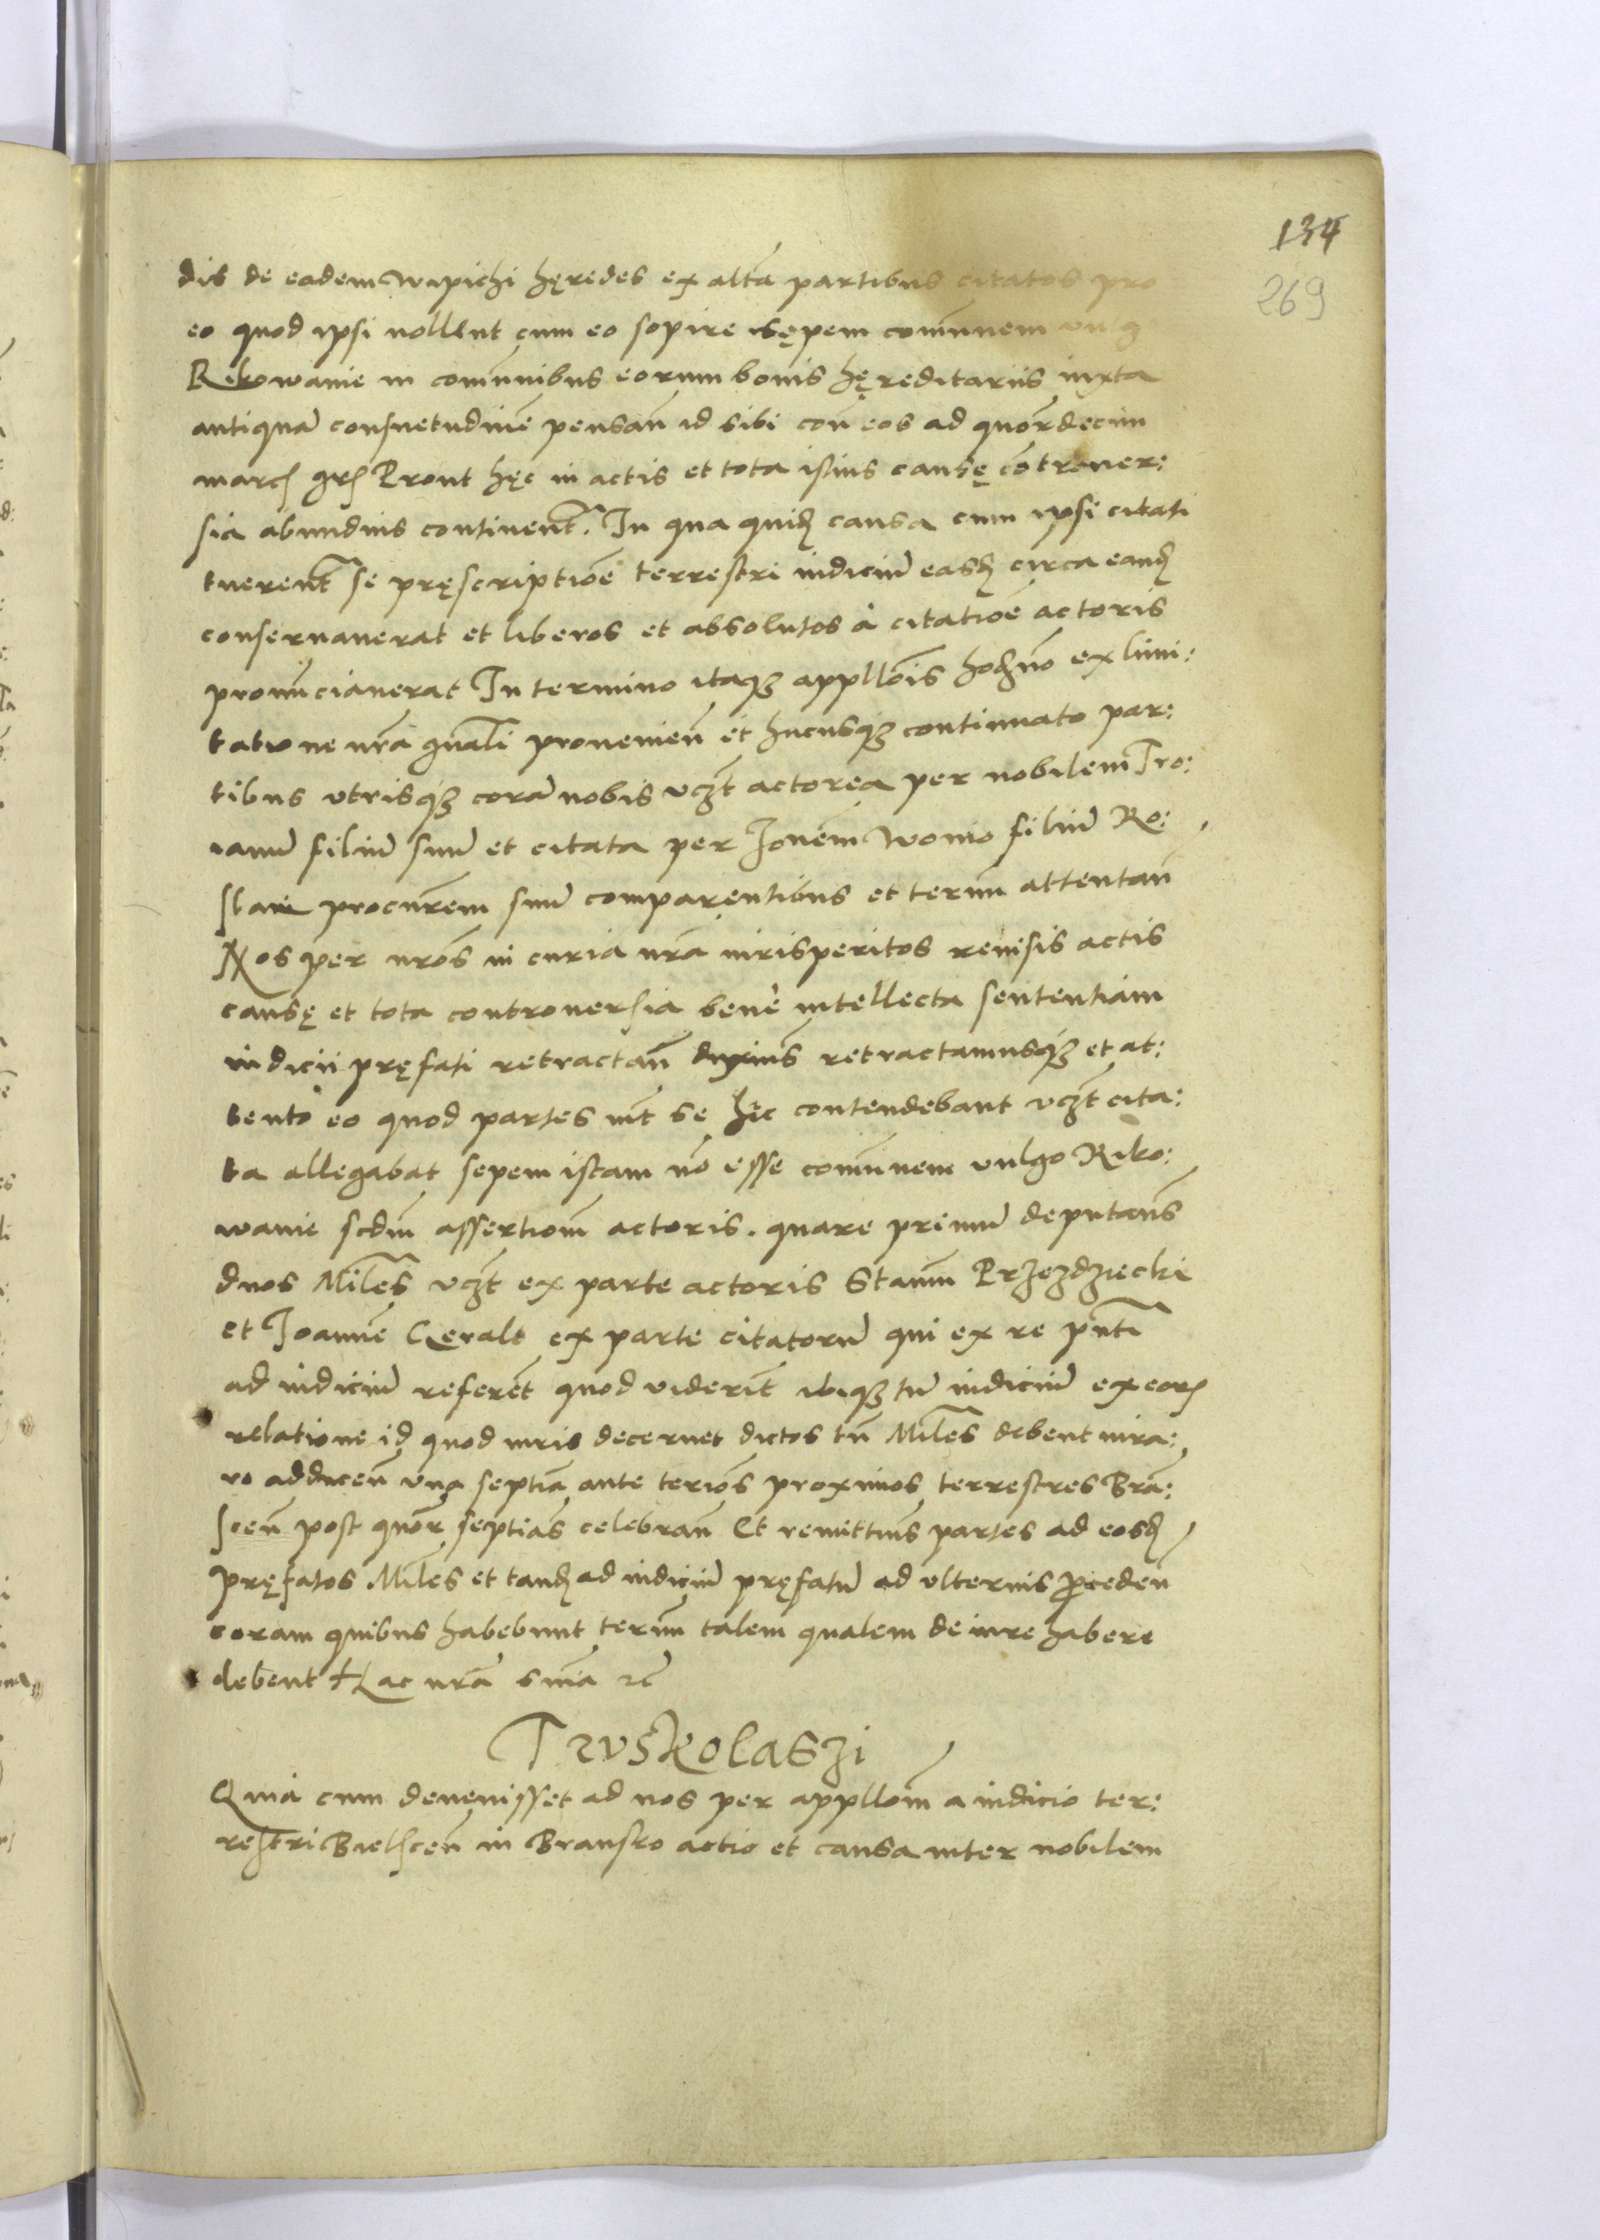 134
269
dis de eadem Wipichi hęredes ex altã partibus citatos pro
eo quod ipsi nollent cum eo sopire sępem comũnem vulg
Rikowanie in comũnibus eorum bonis hęreditariis iuxta
antiquã consuetudinẽ pensañ id sibi coñ eos ad quõrdecim
march grh Prout hęc in actis et tota istius causę cõtrouer:
sia abundius continent̃. In qua quidẽ causa cum ipsi citati
tuerent̃ se pręscriptiõe terrestri iudiciũ easd circa eand
conseruauerat et liberos et absolutos à citatiõe actoris
pronũcianerat In termino itaqz appllõis hodiẽno ex limi:
tatione nrã gnãli prouenieñ et hucusqz continuato par:
tibus vtrisqz corã nobis vczt actorea per nobilem Tro:
ianũ filiũ suũ et citata per Jonẽm Wonio filiũ Ro:
slani procurẽm suũ comparentibus et termĩ attentañ
Nos per nrõs in curia nrã iurisperitos reuisis actis
causę et tota controuersia benè intellecta sententiam
iudicii pręfati retractañ duximũs retractamusqz et at:
tento eo quod partes int̃ se hic contendebant vczt cita:
ta allegabat sepem istam nõ esse comũnem vulgo Riko:
wanie scdm assertiom̃ actoris. quare primũ deputam̃s
duos Milẽs vczt ex parte actoris Stanm̃ Przezdziecki
et Joannẽ Geralt ex parte citatorũ qui ex re pñti
ad iudiciũ referẽt quod viderĩt ibiqz tũ iudiciũ ex eorh
relatione id quod iuris decernet dictos tñ Milẽs debent iura:
to adduceñ vna septiã ante teriõs proximos terrestres Brã:
sceñ post quõr septiãs celebrañ Et remittim̃s partes ad eosd
pręfatos Milẽs et tand ad iudiciũ pręfatũ ad vlterius proceden
coram quibus habebunt term̃ talem qualem de iure habere
debent Hac nrã snĩa rc
Truskolaszi
Quia cum deuenisset ad nos per appllom̃ a iudicio ter:
restri Bielsceñ in Bransko actio et causa inter nobilem